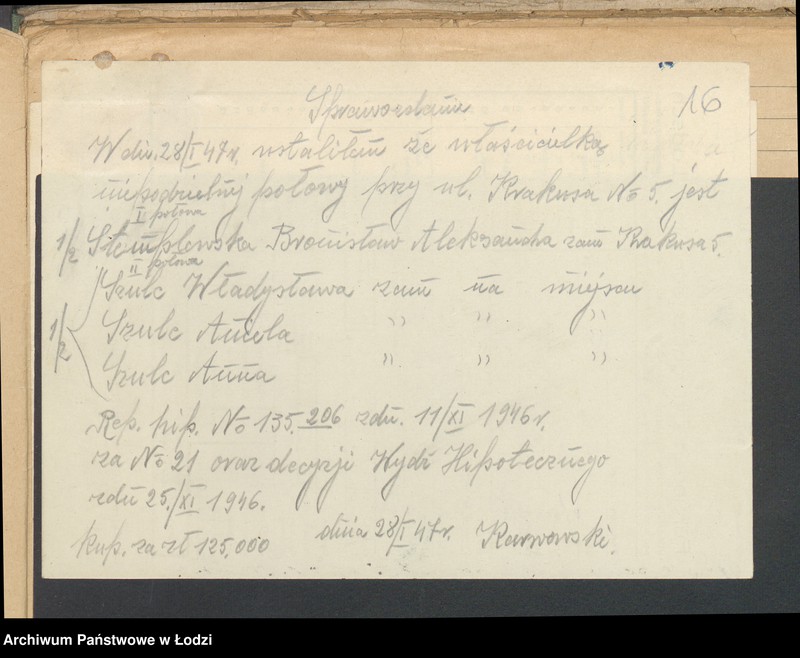 16
Sprawozdanie
W dn. 28/I 47r. ustaliłem że właścicielką
niepodzielnej połowy przy ul. Krakusa No 5. jest
I połowa
1/2 Stemplewska Bronisław Aleksandra zam Krakusa 5.
II połowa
Szulc Władysława zam na miejscu
1/2 Szulc Aniela " " "
Szulc Anna " " "
Rep. hip. No 135.206 zdn. 11/XI 1946r.
za No 21 oraz decyzji Wydź Hipotecznego
zdn 25/XI 1946.
kup. za zł 125.000 dnia 28/I 47r. Karwowski.
Archiwum Państwowe w Łodzi